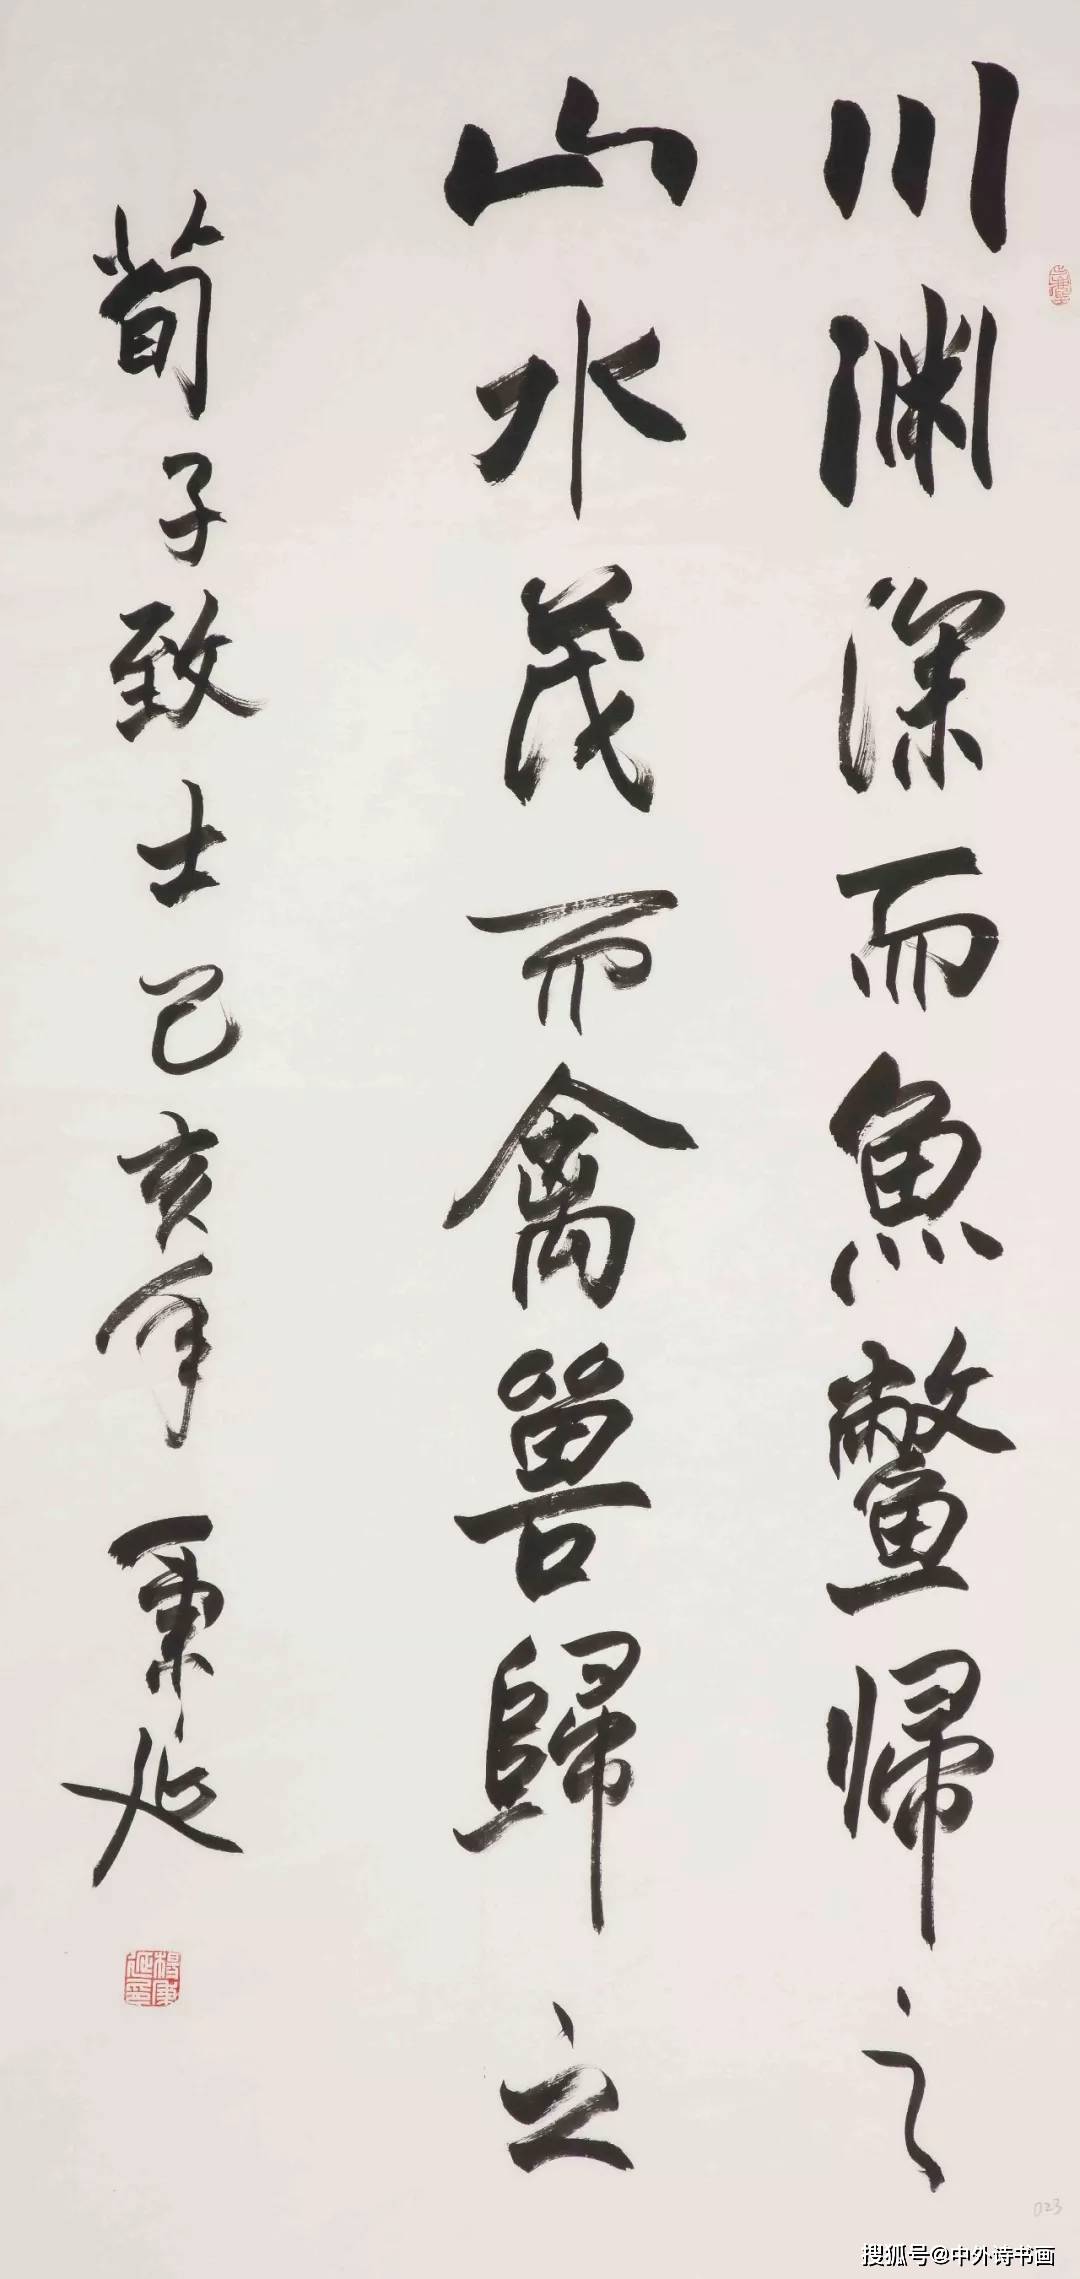 川渊深而魚鳖帰之
山水茂而禽兽歸之
荀子致士己亥年秉延
杨秉延印
023
搜狐号@中外诗书画